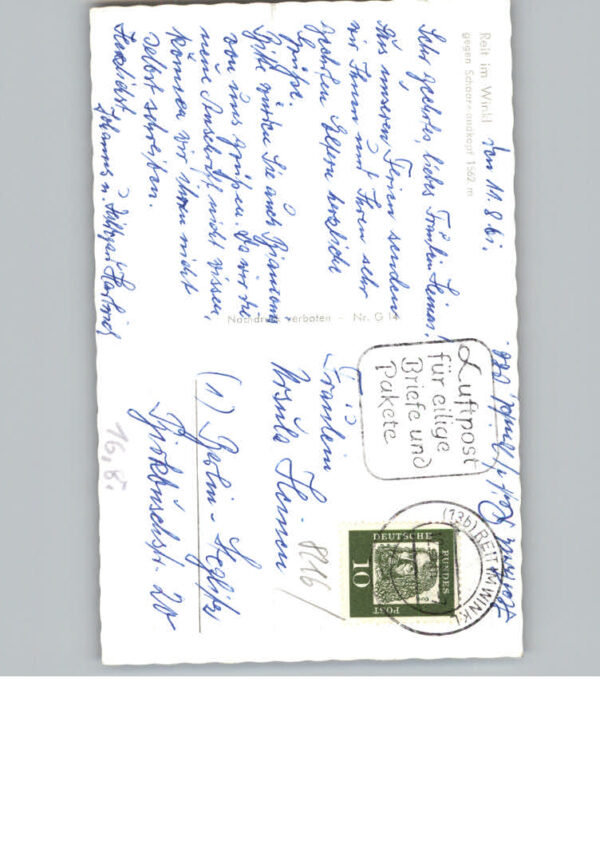 Reit im Winkl
gegen Schaarwandkopf 1562 m
den 11.8.61.
Sehr geehrtes, liebes Fräulein Heinen,
Aus unseren Ferien senden
wir Ihnen und Ihren sehr
geehrten Eltern herzliche
Grüße.
Bitte grüßen Sie auch
von uns grüßen. Da wir die
neue Anschrift nicht wissen,
können wir ihnen nicht
selbst schreiben.
Herzlichst
Johannes u.
Nachdruck verboten - Nr. G 14
Fräulein
Ursula Heinen
(1) Berlin-Steglitz
Birkbuschstr. 20
16.8.
8216/
Luftpost
für eilige
Briefe und
Pakete
(13b) REIT IM WINKL
DEUTSCHE
BUNDES
POST
10